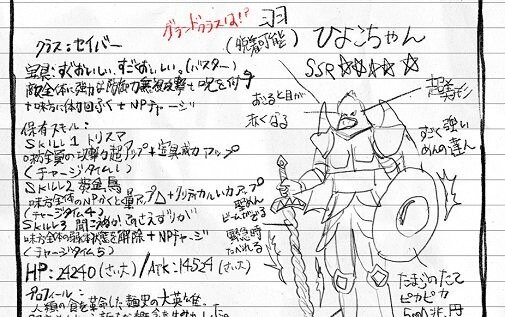 グランドクラスは!?
羽
(脱着可能)
ひよこちゃん
SSR ☆☆☆☆☆
クラス:セイバー
宝具:すごおいしい、すごおいしい。(バスター)
敵全体に強力な防御力無視攻撃+呪を付与
+味方に体力回ふく+NPチャージ
保有スキル:
Skill 1 トリスマ
味方全員の攻撃力超アップ+宝具威力アップ
(チャージタイム
Skill 2 黄金鳥
味方全体のNPかくとく量アップ+クリティカルい力アップ
(チャージタイム4)
Skill 3
味方全体の弱体状態を解除+NPチャージ
(チャージタイム5)
HP:24240(さい大)/ATK:14524(さい大)
プロフィール:
人類の食を革命した麺界の大英雄。
おこると目が
赤くなる
超美形
すごく強い
めんの達人
聖めん
ビームがでる
緊急時
たべれる
たまごのたて
ピカピカ
500兆円